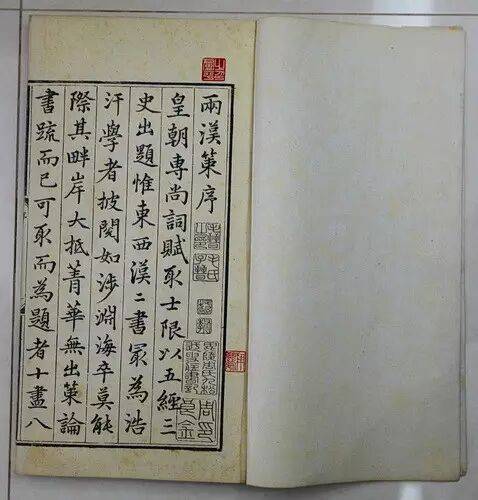 兩漢策序
皇朝專尚詞賦取士限以五經三
史出題惟東西漢二書㝡為浩
汗學者披閱如涉淵海卒莫能
際其畔岸大抵菁華無出策論
書疏而已可取而為題者十盡八